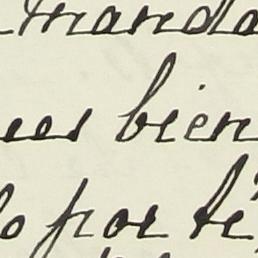 manda
ees bien
lo por te